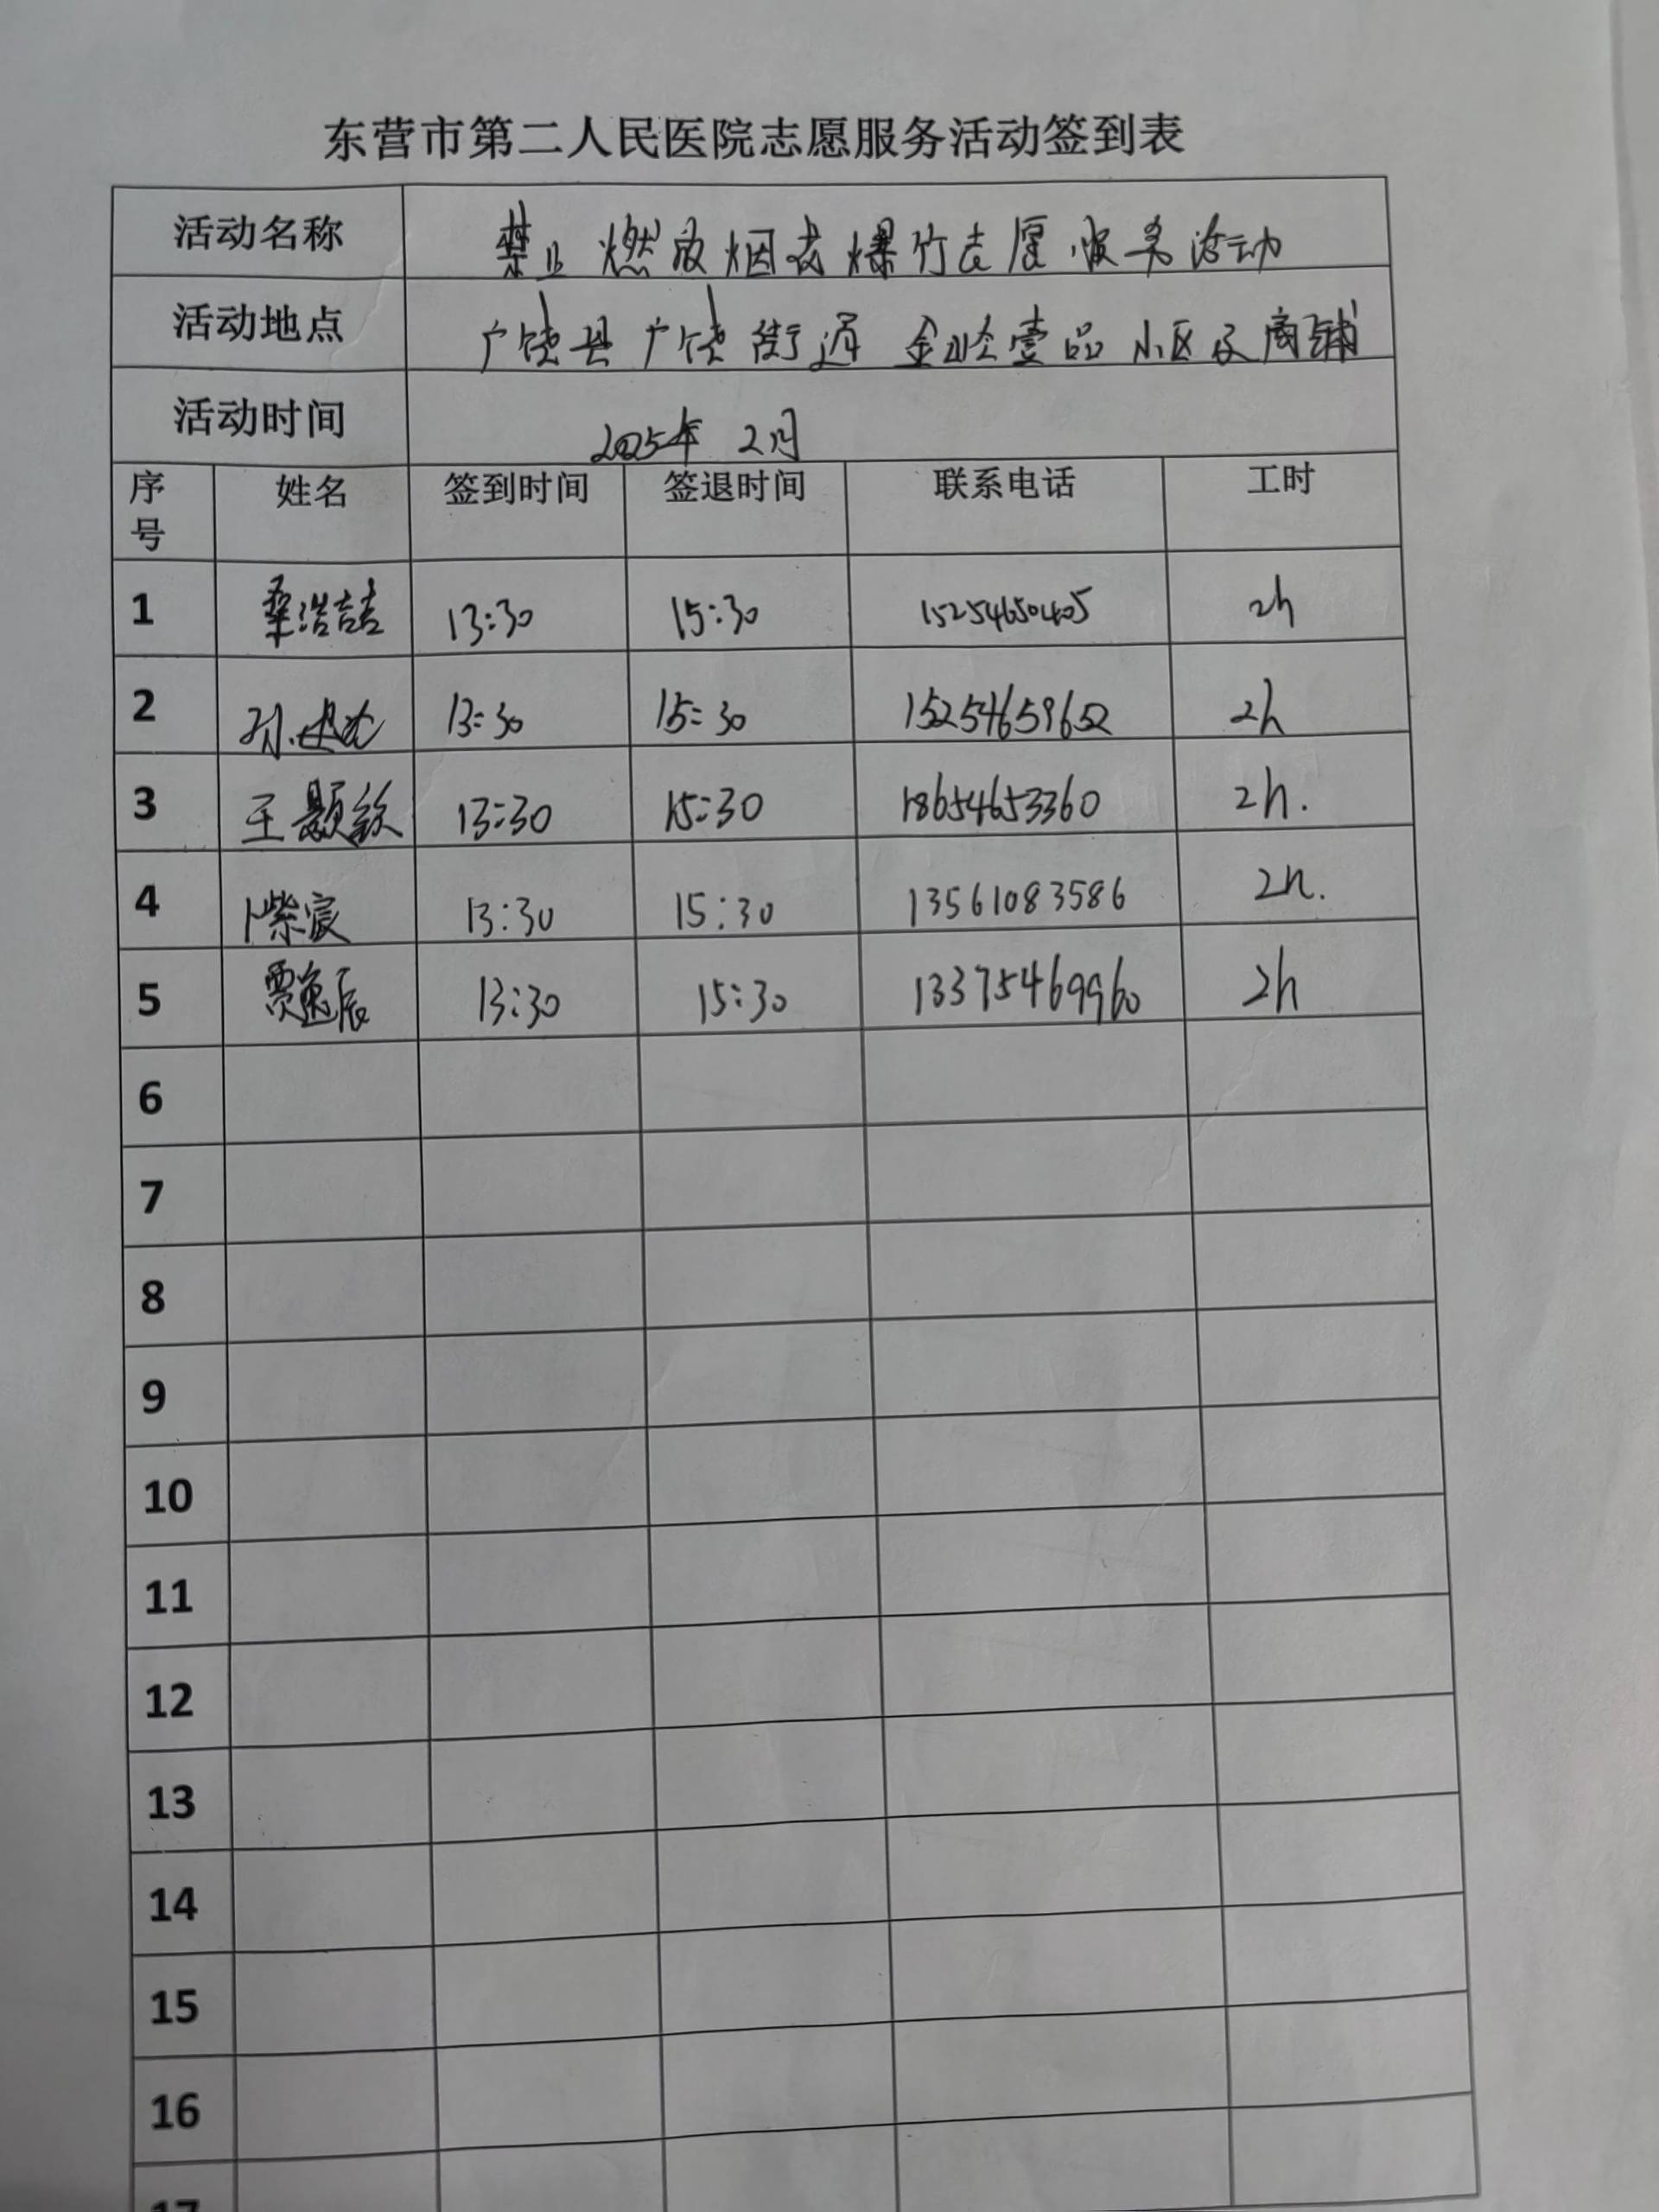 东营市第二人民医院志愿服务活动签到表
活动名称 禁止燃放烟花爆竹志愿服务活动
活动地点 广饶县广饶街道 金岭壹品小区及商铺
活动时间 2025年 2月
序号 姓名 签到时间 签退时间 联系电话 工时
1 桑浩喆 13:30 15:30 15254650405 2h
2 孙 13:30 15:30 15254659652 2h
3 王颢 13:30 15:30 18654653360 2h.
4 卜紫宸 13:30 15:30 13561083586 2h.
5 贾逸辰 13:30 15:30 13375469960 2h
6
7
8
9
10
11
12
13
14
15
16
17